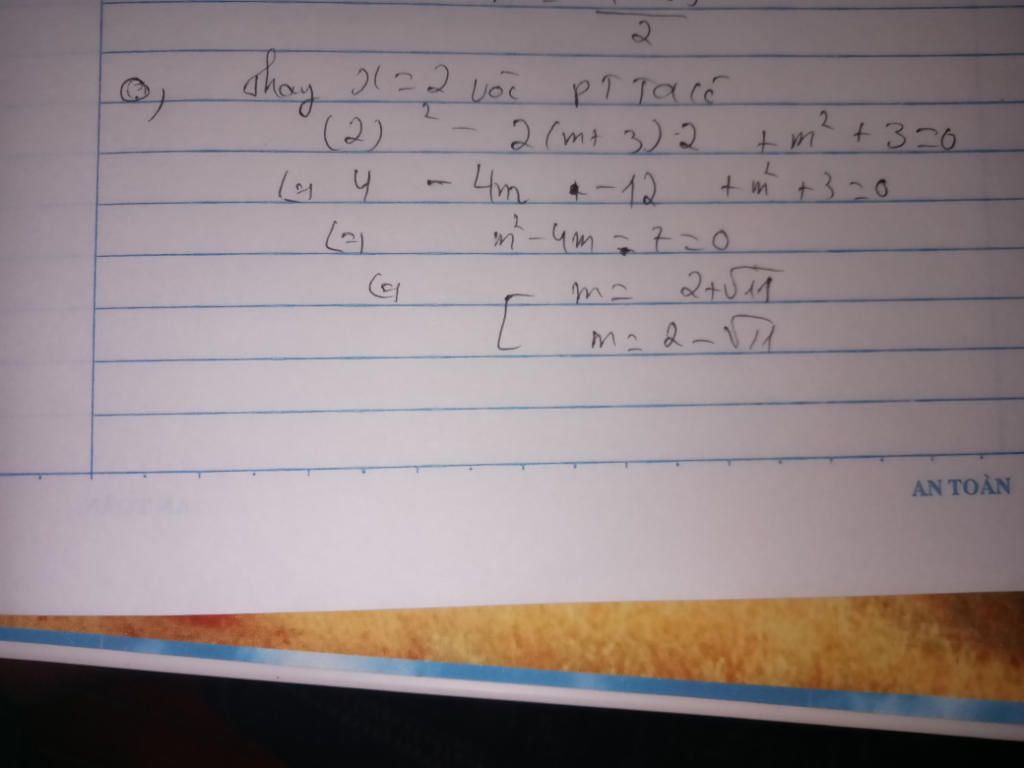 2
Thay x = 2 vào PT Ta có
(2)² - 2(m + 3).2 + m² + 3 = 0
(=) 4 - 4m - 12 + m² + 3 = 0
(=) m² - 4m - 7 = 0
(=) [ m = 2 + √11
m = 2 - √11
AN TOÀN